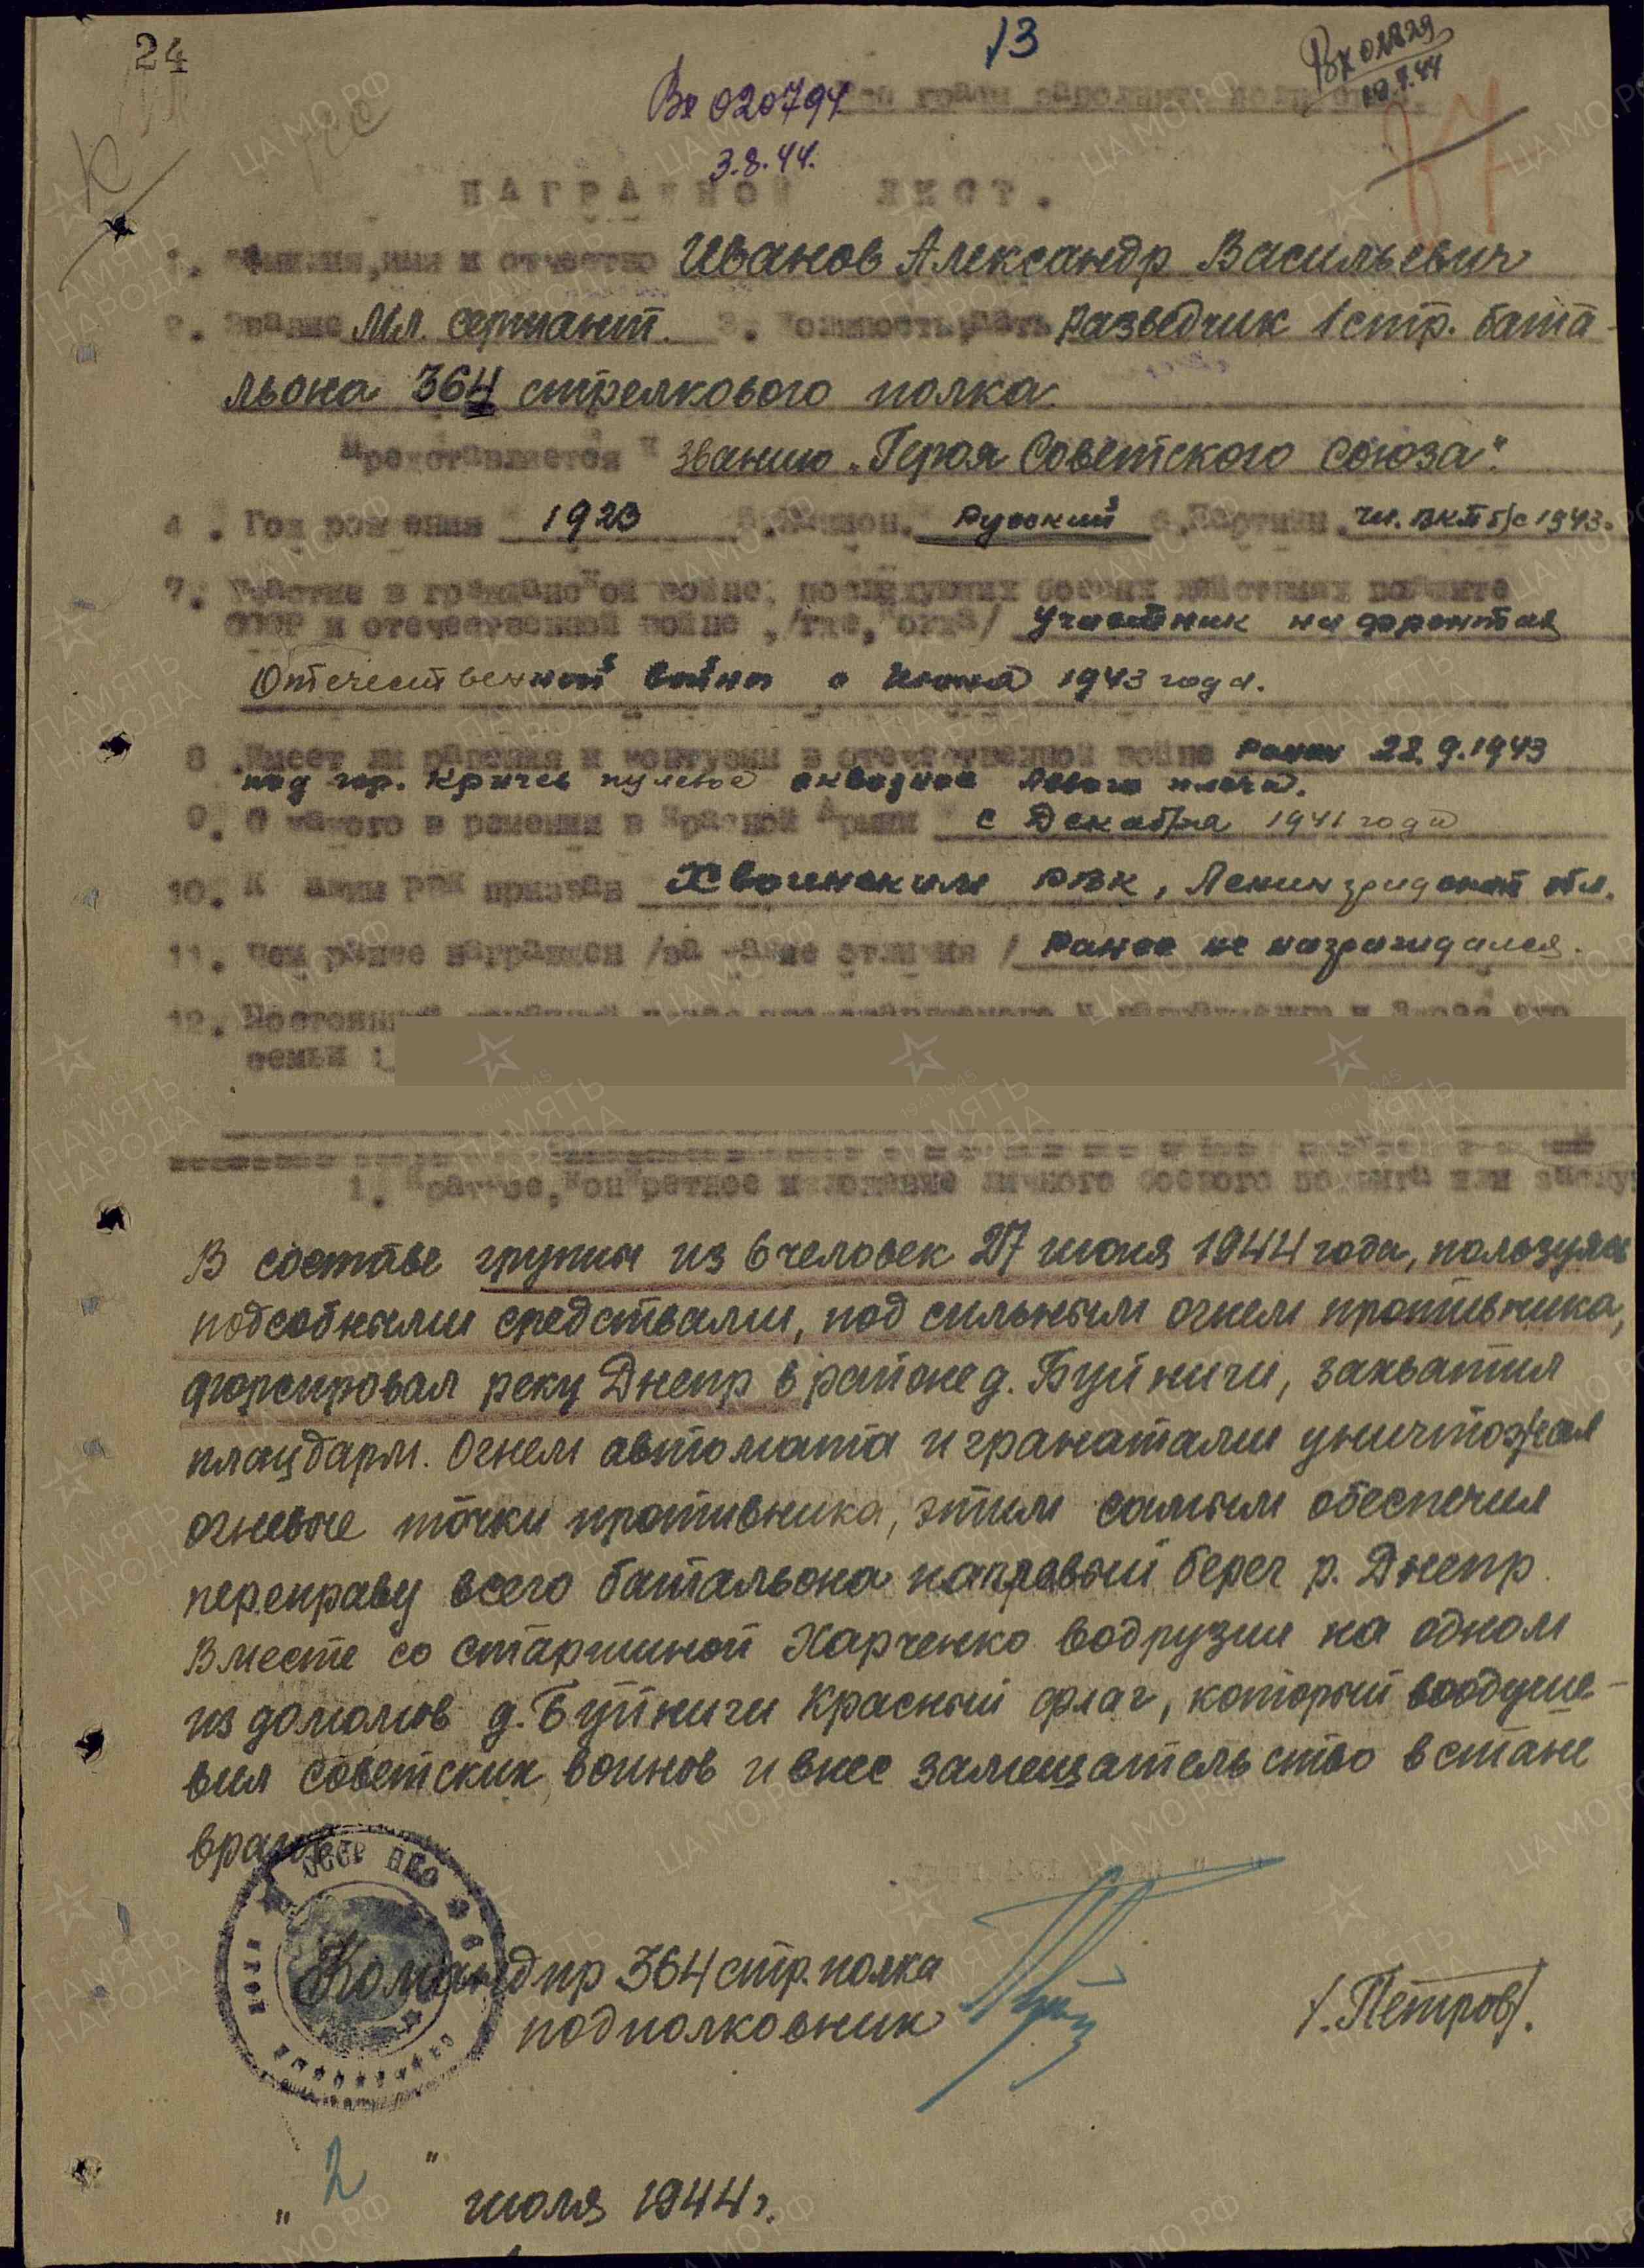 24
13
Вх 01829
19.7.44
Вх 020794
3.8.44.
НАГРАДНОЙ ЛИСТ.
1. Фамилия, имя и отчество Иванов Александр Васильевич
2. Звание Мл. сержант. 3. Должность, часть разведчик 1 стр. бата-
льона 364 стрелкового полка
Представляется к званию „Героя Советского Союза".
4. Год рождения 1923 5. Национ. Русский 6. Партийн. чл. ВКП б/с 1943.
7. Участие в гражданской войне, последующих боевых действиях по защите
СССР и отечественной войне, /где, когда/ Участник на фронтах
Отечественной войны с Июня 1943 года.
8. Имеет ли ранения и контузии в отечественной войне Ранен 22.9.1943
под гор. Кричев пулевое сквозное левого плеча.
9. С какого времени в Красной Армии с Декабря 1941 года
10. Каким РВК призван Хвоинским РВК, Ленинградской обл.
11. Чем ранее награжден /за какие отличия/ Ранее не награждался.
12. Постоянный
семьи:
1. Краткое, конкретное изложение личного боевого подвига или заслу
В составе группы из 6 человек 27 июня 1944 года, пользуясь
подсобными средствами, под сильным огнем противника,
форсировал реку Днепр в районе д. Буйничи, захватил
плацдарм. Огнем автомата и гранатами уничтожал
огневые точки противника, этим самым обеспечил
переправу всего батальона на правый берег р. Днепр.
Вместе со старшиной Харченко водрузил на одном
из домов д. Буйничи Красный флаг, который вооduше-
вил советских воинов и внес замешательство в стане
врага.
СССР НКО
Командир 364 стр. полка
подполковник /.Петров/.
„2" июля 1944 г.